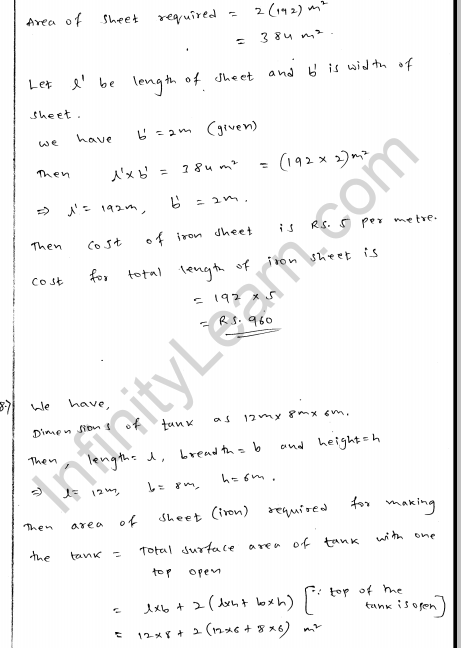 Area of sheet required = 2(192) m²
= 384 m².
Let l' be length of sheet and b' is width of
sheet.
we have b' = 2m (given)
Then l' x b' = 384 m² = (192 x 2) m²
⇒ l' = 192m, b' = 2m.
Then cost of iron sheet is Rs. 5 per metre.
cost for total length of iron sheet is
= 192 x 5
= Rs. 960
8.7 We have,
Dimensions of tank as 12m x 8m x 6m.
Then, length = l, breadth = b and height = h
⇒ l = 12m, b = 8m, h = 6m.
Then area of sheet (iron) required for making
the tank = Total surface area of tank with one
top open
= l x b + 2 (l x h + b x h) [∵ top of the
tank is open]
= 12 x 8 + 2 (12 x 6 + 8 x 6) m²
InfinityLearn.com